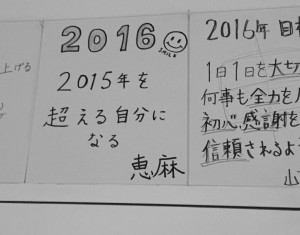 上げる
2016
SMILE
2015年を
超える自分に
なる
恵麻
2016年 目
1日1日を大切
何事も全力を
初心、感謝を
信頼されるよ
山